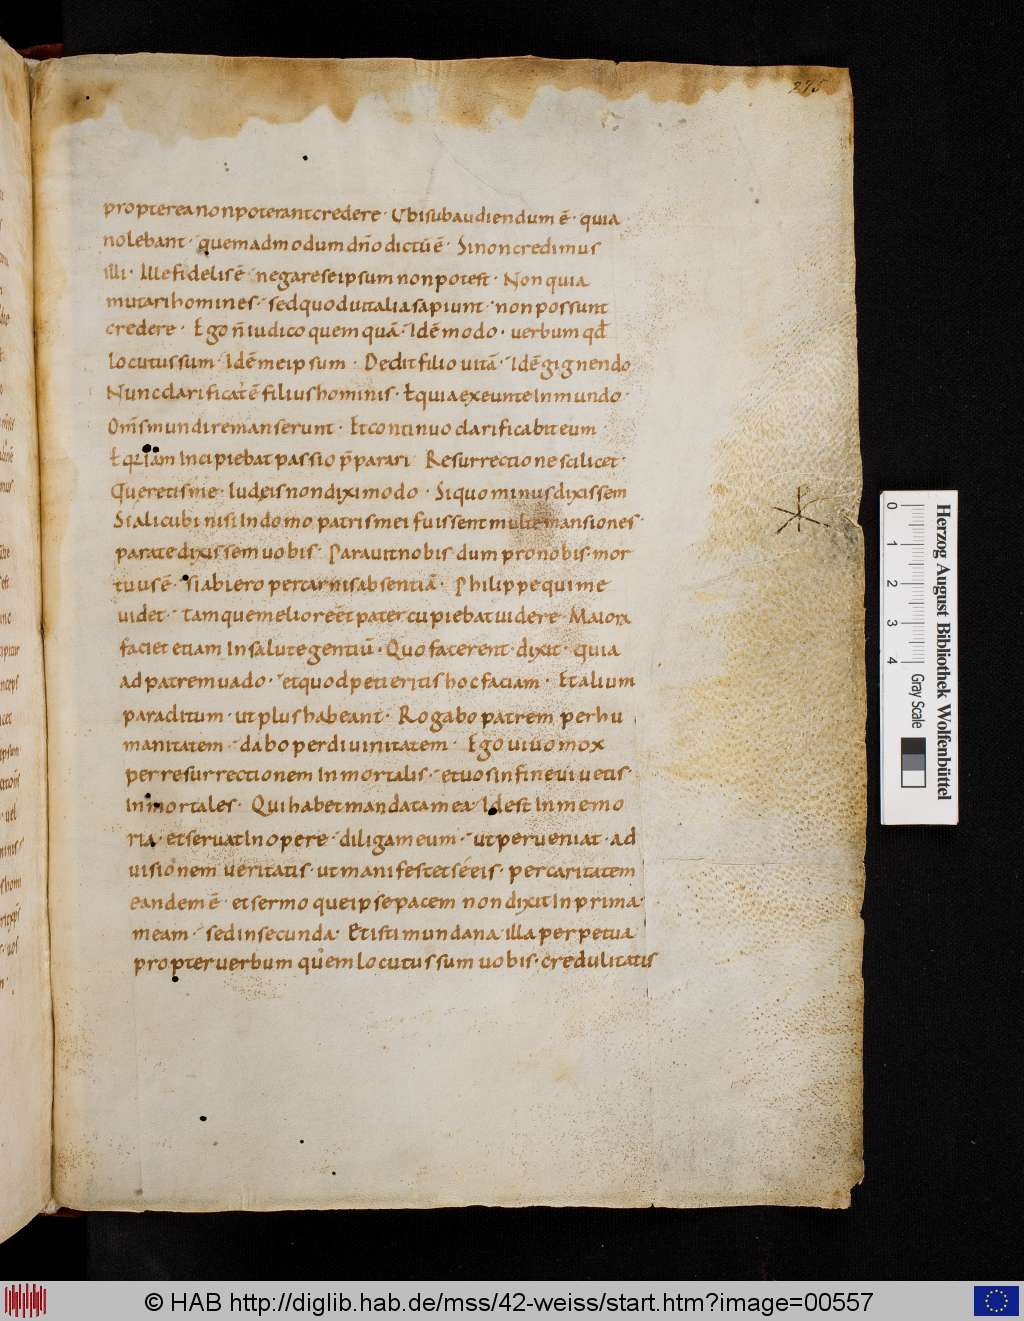 275
propterea non poterant credere · Ubi subaudiendum ē · quia
nolebant · quemadmodum dn̄o dictū ē · Si non credimus
illi · Ille fidelis ē · negare se ipsum non potest · Non quia
mutari homines · sed quod ut talia sapiunt · non possunt
credere · Ego n̄ iudico quemquā · Idē modo · verbum qđ
locutus sum · Idē me ipsum · Dedit filio uitā · Idē gignendo
Nunc clarificat' ē filius hominis · Et quia exeunte In mundo ·
Om̄s mundi remanserunt · Et continuo clarificabit eum
Et Incipiebat passio p̄parari Resurrectione scilicet ·
Queretis me · Iudęis non dixi modo · Si quo minus dixissem
Si alicubi nisi In domo patris mei fuissent multe mansiones ·
parate dixissem uobis · Parauit nobis dum pro nobis · mor
tuus ē · Si abiero per carnis absentiā · Philippe qui me
uidet · Tamque meliore eēt pater cupiebat uidere · Maiora
faciet etiam In salute gentiū · Quo facerent · dixit · quia
ad patrem uado · et quod petieritis hoc faciam · Et alium
paraclitum · ut plus habeant · Rogabo patrem per hu
manitatem · dabo per diuinitatem · Ego uiuo mox
per resurrectionem In mortalis · et uos in fine uiuetis ·
In mortales · Qui habet mandata mea · Id est In memo
ria · et seruat In opere · diligam eum · ut perueniat · ad
uisionem ueritatis · ut manifestet sé eis · per caritatem
eandem ē · et sermo que ipse pacem non dixit In prima
meam · sed in secunda · Et isti mundana · illa perpetua
propter uerbum quem locutus sum uobis · credulitatis
Herzog August Bibliothek Wolfenbüttel
0 1 2 3 4 Gray Scale
© HAB http://diglib.hab.de/mss/42-weiss/start.htm?image=00557